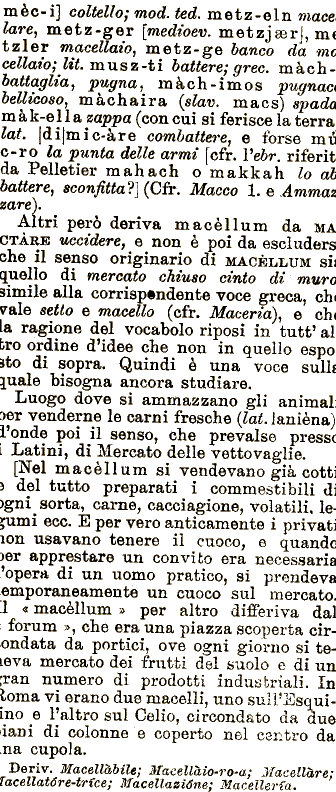 mèc-i] coltello; mod. ted. metz-eln mace
lare, metz-ger [medioev. metzjær], me
tzler macellaio, metz-ge banco da ma
cellaio; lit. musz-ti battere; grec. màch-
battaglia, pugna, màch-imos pugnace
bellicoso, màchaira (slav. macs) spada
màk-ella zappa (con cui si ferisce la terra
lat. [di]mic-àre combattere, e forse mú
c-ro la punta delle armi [cfr. l'ebr. riferit
da Pelletier mahach o makkah lo ab
battere, sconfitta?] (Cfr. Macco 1. e Ammaz
zare).
Altri però deriva macèllum da MA
CTÀRE uccidere, e non è poi da escluders
che il senso originario di MACÈLLUM sia
quello di mercato chiuso cinto di muro
simile alla corrispondente voce greca, ch
vale setto e macello (cfr. Maceria), e che
la ragione del vocabolo riposi in tutt' al
tro ordine d'idee che non in quello espo
sto di sopra. Quindi è una voce sulla
quale bisogna ancora studiare.
Luogo dove si ammazzano gli animali
per venderne le carni fresche (lat. lanièna)
d'onde poi il senso, che prevalse presso
i Latini, di Mercato delle vettovaglie.
[Nel macèllum si vendevano già cotti
e del tutto preparati i commestibili di
ogni sorta, carne, cacciagione, volatili, le-
gumi ecc. E per vero anticamente i privati
non usavano tenere il cuoco, e quando
per apprestare un convito era necessaria
l'opera di un uomo pratico, si prendeva
temporaneamente un cuoco sul mercato.
Il « macèllum » per altro differiva dal
« forum », che era una piazza scoperta cir-
condata da portici, ove ogni giorno si te-
neva mercato dei frutti del suolo e di un
gran numero di prodotti industriali. In
Roma vi erano due macelli, uno sull'Esqui-
lino e l'altro sul Celio, circondato da due
piani di colonne e coperto nel centro da
una cupola.
Deriv. Macellàbile; Macellàio-ro-a; Macellàre;
Macellatóre-tríce; Macellazióne; Macellería.